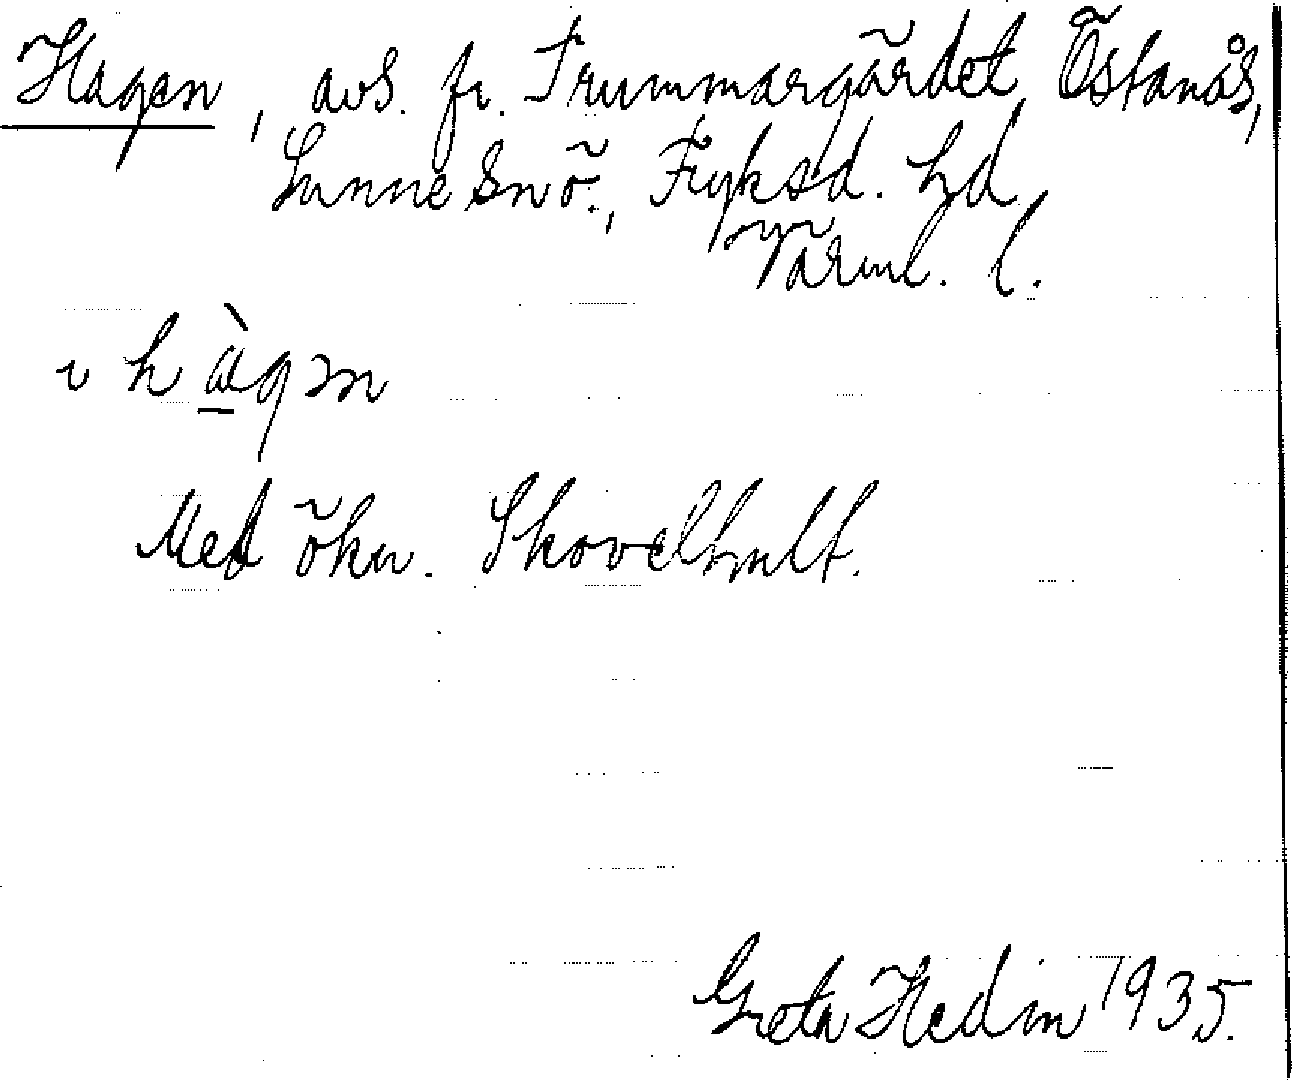 Hagen, avs. fr. Trummargärdet, Östanås,
Sunne snö., Fryksd. hd,
Värml. l.
Med ökn. Skovelhult.
Greta Hedin 1935.